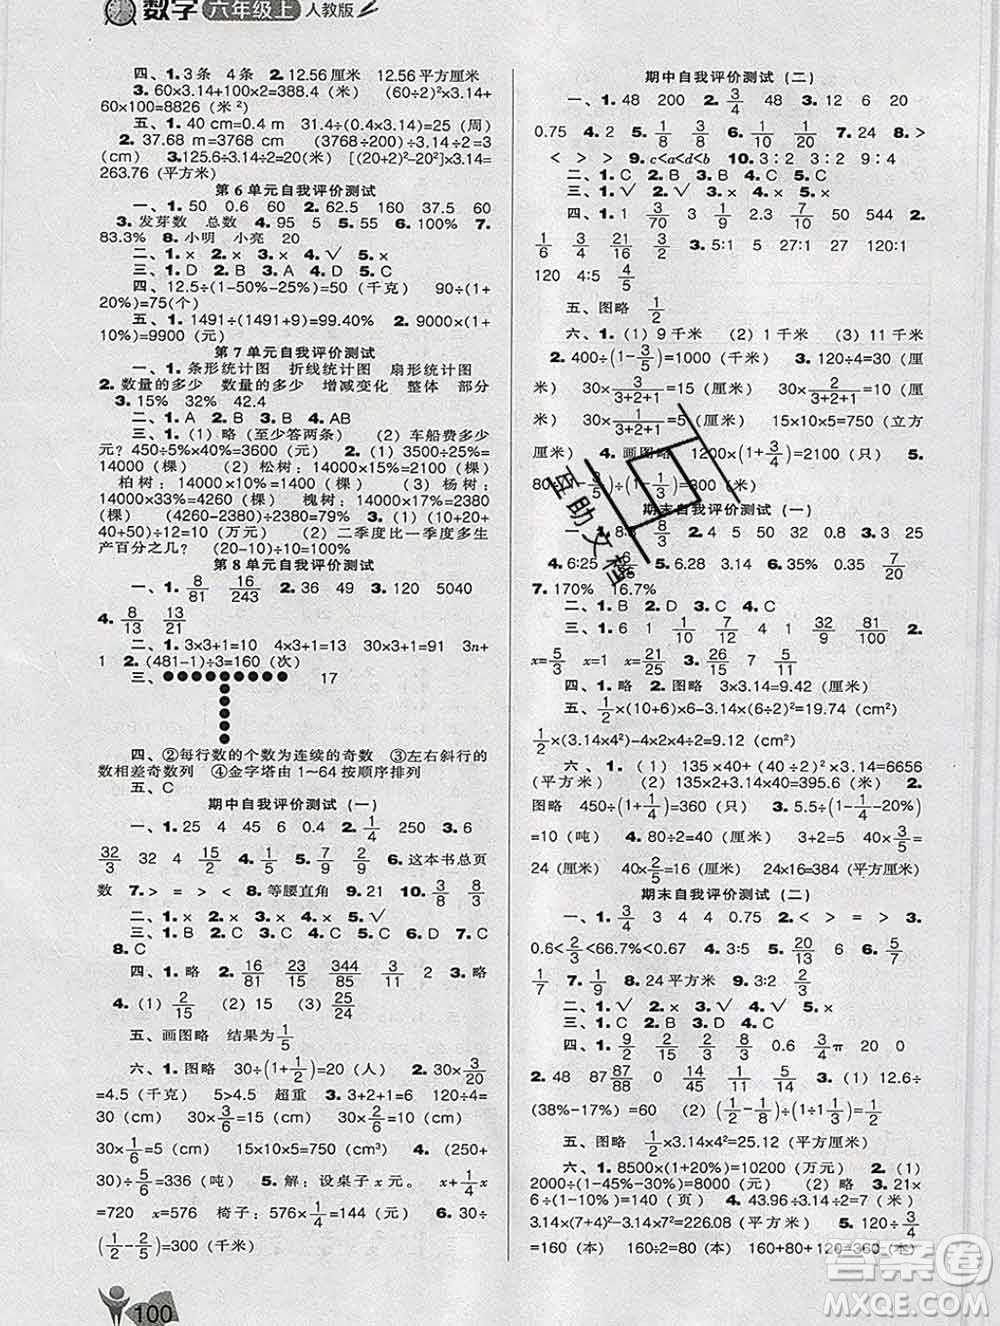 数学 六年级上 人教版
四、1. 3条 4条 2. 12.56厘米 12.56平方厘米
3. 60×3.14+100×2=388.4(米) (60÷2)²×3.14+60×100=8826(米²)
五、1. 40 cm=0.4 m 31.4÷(0.4×3.14)=25(周)
2. 37.68 m=3768 cm 3768÷200÷3.14÷2=3
(cm) 3. 125.6÷3.14÷2=20(米) [(20+2)²-20²]×3.14=
263.76(平方米)
第6单元自我评价测试
一、1. 50 0.6 60 2. 62.5 160 37.5 60
3. 发芽数 总数 4. 95 5 5. 55 6. 100% 7.
83.3% 8. 小明 小亮 20
二、1. × 2. × 3. × 4. √ 5. ×
三、1. D 2. B 3. A 4. D 5. C
四、12.5÷(1-50%-25%)=50(千克) 90÷(1+
20%)=75(个)
五、1. 1491÷(1491+9)=99.40% 2. 9000×(1+
10%)=9900(元)
第7单元自我评价测试
一、1. 条形统计图 折线统计图 扇形统计图
2. 数量的多少 数量的多少 增减变化 整体 部分
3. 15% 32% 42.4
二、1. A 2. B 3. B 4. AB
三、1. (1) 略(至少答两条) (2) 车船费多少
元?450÷5%×40%=3600(元) 2. (1) 3500÷25%=
14000(棵) (2) 松树:14000×15%=2100(棵)
柏树:14000×10%=1400(棵) (3) 杨树:
14000×33%=4260(棵) 槐树:14000×17%=2380
(棵) (4260-2380)÷2380=79% 3. (1) (10+20+
40+50)÷12=10(万元) (2) 二季度比一季度多生
产百分之几? (20-10)÷(10)=100%
第8单元自我评价测试
一、1. 8/81 16/243 2. 36 49 3. 120 5040
4. 8/13 13/21
二、1. 3×3+1=10 34×3+1=103 30×3+1=91 3n+
1 2. (481-1)÷3=160(次)
三、 17
四、②每行数的个数为连续的奇数 ③左右斜行的
数相差奇数列 ④金字塔由1~64按顺序排列
五、C
期中自我评价测试(一)
一、1. 25 4 45 6 0.4 2. 1/4 250 3. 6
32/33 32 4 15/2 4. 1/5 5. 7/9 2/9 6. 这本书总页
数 7. > = > < 8. 等腰直角 9. 21 10. 3/8 8/3
二、1. × 2. × 3. × 4. × 5. √
三、1. B 2. C 3. C 4. C 5. B 6. C 7. B
8. C
四、1. 略 2. 16/81 23/15 344/85 3/11 2 3. 略
4. (1) 2/15 (2) 15 (3) 25/24
五、画图略 结果为1/5
六、1. 图略 30÷(1+1/2)=20(人) 2. 30×3/20
=4.5(千克) 5>4.5 超重 3. 3+2+1=6 120÷4=
30(cm) 30×3/6=15(cm) 30×2/6=10(cm)
30×1/6=5(cm) 15×10×5=750(cm³) 4. (250+
30)÷5/6=336(吨) 5. 解:设桌子x元。 x+1/4x
=720 x=576 椅子:576×1/4=144(元) 6. 30÷
(1/2-2/5)=300(千米)
100
期中自我评价测试(二)
一、1. 48 200 2. 3/4 48 3. 12 6 20
0.75 4. 2 5. 1/8 6. 1/10 1/20 7. 24 8. >
< > > 9. c<a<d<b 10. 3∶2 3∶2 9∶4
二、1. C 2. B 3. C 4. C 5. C
三、1. √ 2. × 3. √ 4. × 5. √
四、1. 1 3/70 3 1/9 2.3 7/10 50 544 2.
1/6 3/4 21/16 3/4 3. 5:1 5 27:1 27 120:1
120 4:5 4/5
五、图略 1/2
六、1. (1) 9千米 (2) 1千米 (3) 11千米
2. 400÷(1-3/5)=1000(千米) 3. 120÷4=30(厘
米) 30×3/(3+2+1)=15(厘米) 30×2/(3+2+1)=10(厘
米) 30×1/(3+2+1)=5(厘米) 15×10×5=750(立方
厘米) 4. 画图略 1200×(1+3/4)=2100(只) 5.
80÷(1-3/5)÷(1-1/3)=300(米)
期末自我评价测试(一)
一、1. 8:3 8/3 2. 4 5 50 32 0.8 3. <
4. 6:25 6/25 5. 6.28 3.14 6. 35% 0.35 7/20
7. 170% 16.7%
二、1. B 2. D 3. C 4. C
三、1. 6 1 1/10 7/12 4 1 32/33 81/100 2.
x=5/3 x=1 x=21/25 3. 26/15 7 3/4
四、1. 略 2. 图略 3×3.14=9.42(厘米)
五、1/2×(10+6)×6-3.14×(6÷2)²=19.74(cm²)
1/2×(3.14×4²-3.14×2²)=18.84(cm²)
六、1. (1) 135×40+(40÷2)²×3.14=6656
(平方米) (2) 135×2+3.14×40=395.6(米) 2.
图略 450÷(1+1/4)=360(只) 3. 5.5÷(1-1/4-20%)
=10(吨) 4. 80÷2=40(厘米) 3+2=5 40×3/5=
24(厘米) 40×2/5=16(厘米) 24×16=384(平方厘米)
期末自我评价测试(二)
一、1. 3/4 3 4 4 0.75 2. < > = > 3.
0.6<2/3<66.7%<0.67 4. 3:5 5. 20/13 6 6. 5/7
1/7 7. 1/9 8. 24平方米 9. 3:2 2/3
二、1. √ 2. × 3. × 4. √ 5. √
三、1. C 2. B 3. D 4. C
四、1. 9/11 2/15 3/8 0.6 3/4π 20 0
2. 48 87 87/88 0 14/45 1/2 5/14 3. (1) 12.6÷
(38%-17%)=60 (2) (1/2-1/8)÷(1÷1/2)=1/2
五、图略 1/2×3.14×4²=25.12(平方厘米)
六、1. 8500×(1+20%)=10200(万元) 2. (1)
2000÷(1-45%-30%)=8000(元) (2) 略 3. 21×
6÷(1-10%)=140(页) 4. 43.96÷3.14÷2=7(米)
3.14×(7+4)²-3.14×7²=226.08(平方米) 5. 120÷3/4
=160(本) 160÷2=80(本) 160+80+120=360(本)
互助文档
答案圈
MXQE.COM